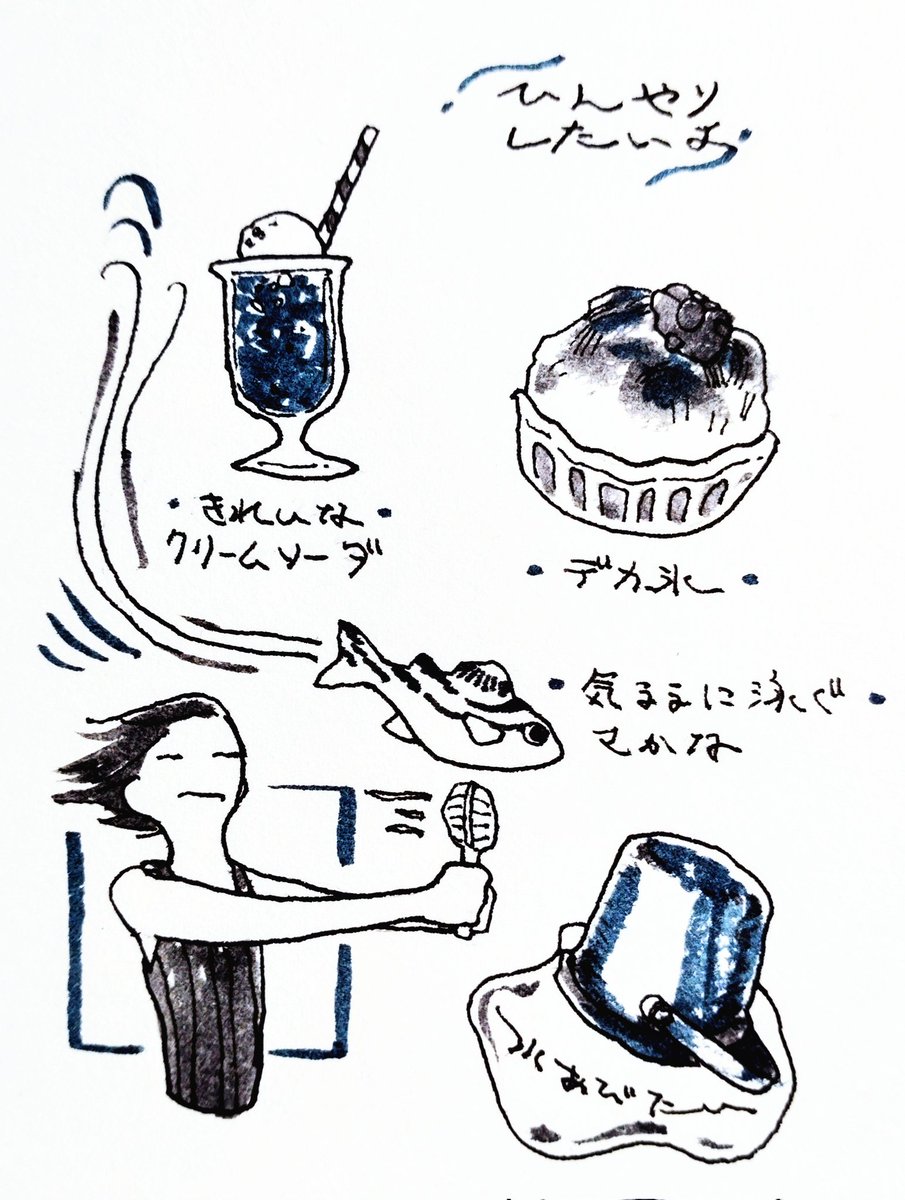 ひんやり
したいよ
きれいな
クリームソーダ
デカ氷
気ままに泳ぐ
さかな
水あびたい